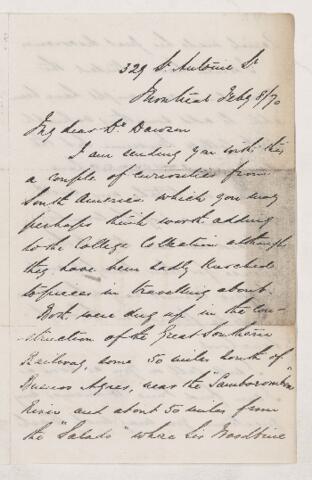 329 St. Antoine St
Montreal Feby 8/70
My dear Dr Dawson
I am sending you with this
a couple of curiosities from
South America which you may
perhaps think worth adding
to the College Collection although
they have been sadly knocked
to pieces in travelling about.
Both were dug up in the con-
struction of the Great Southern
Railway some 50 miles south of
Buenos Ayres, near the "Samborombon"
River and about 50 miles from
the "Salado" where Sir Woodbine